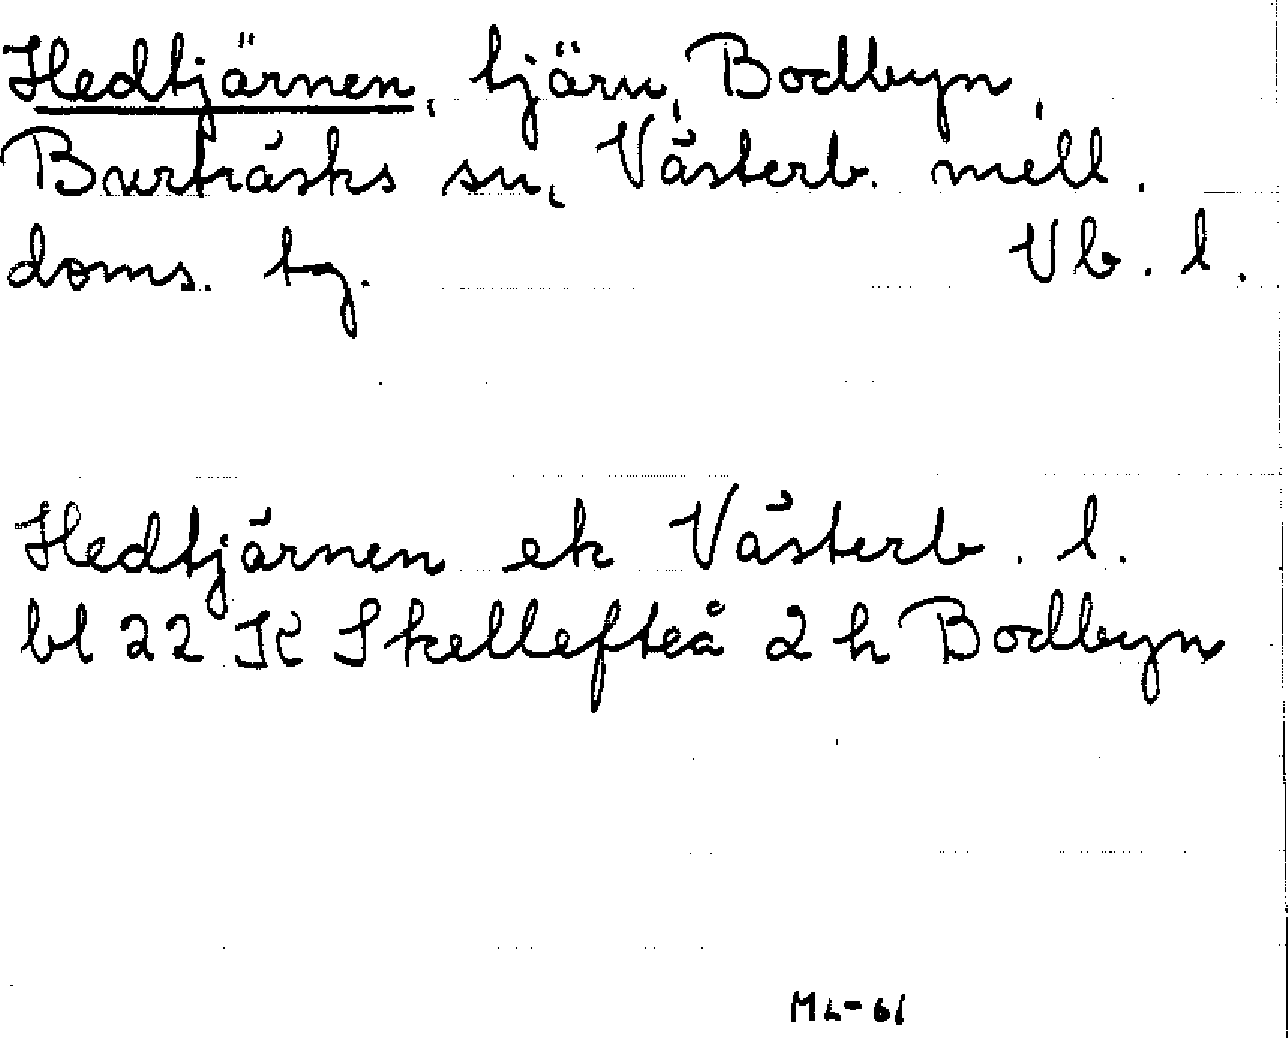 Hedtjärnen, tjärn, Bodbyn,
Burträsks sn, Västerb. mell.
doms. tg. Vb. l.
Hedtjärnen ek Västerb. l.
bl 22 K Skellefteå 2 h Bodbyn
ML-61